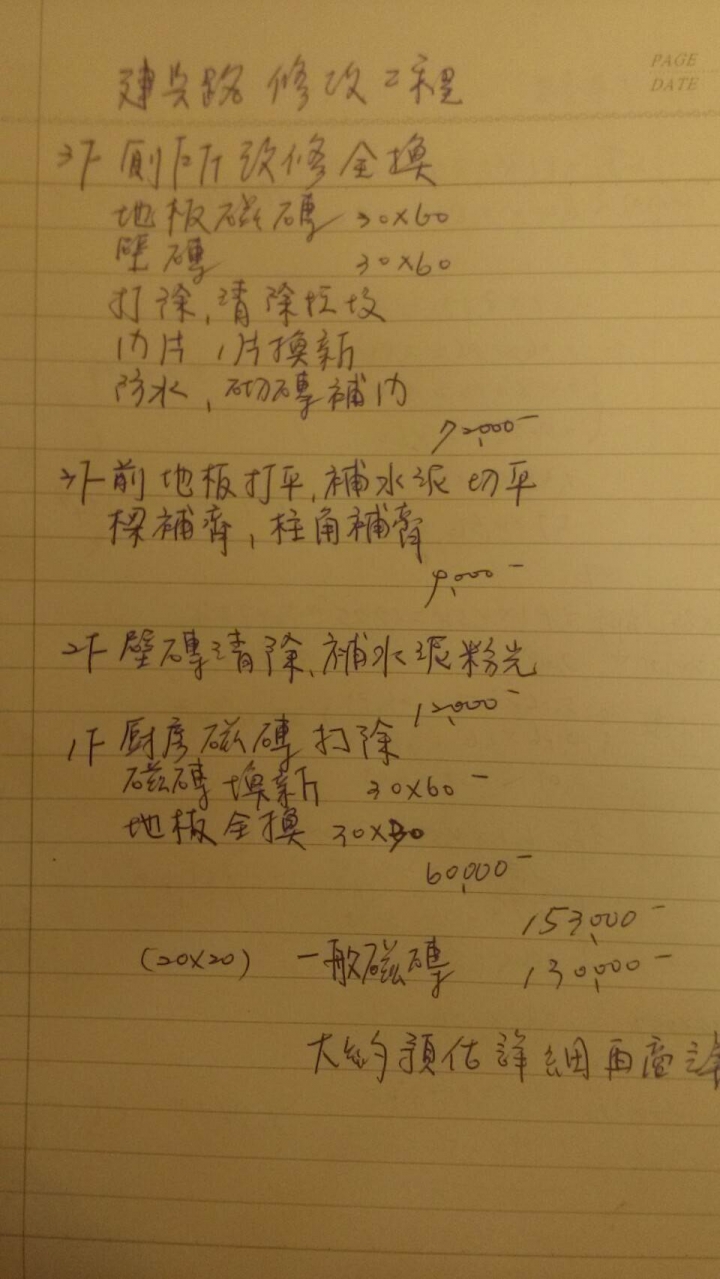 PAGE
DATE
建興路 修改工程
3F 廁所改修全換
地板磁磚 30x60
壁磚 30x60
打除,清除垃圾
內片 1片換新
防水,砌磚補內
72,000-
3F前地板打平,補水泥切平
樑補齊,柱角補齊
9,000-
2F 壁磚清除,補水泥粉光
12,000-
1F 廚房磁磚打除
磁磚換新 30x60-
地板全換 30x30
60,000-
153,000-
(20x20) 一般磁磚 130,000-
大約預估詳細再商